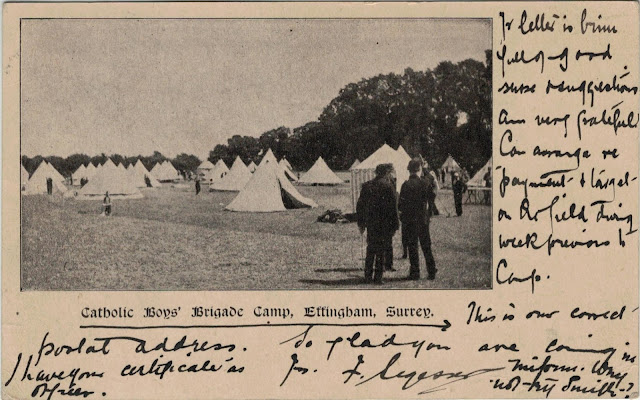 Yr letter is brim
full of good
sense & suggestions
Am very grateful.
Can arrange re
payment & target
on Rr field during
week previous to
Camp.
Catholic Boys' Brigade Camp, Effingham, Surrey.
This is our correct
postal address. So glad you are coming in
I have your certificate as Yrs. F. uniform. Why
officer. not try Smith?